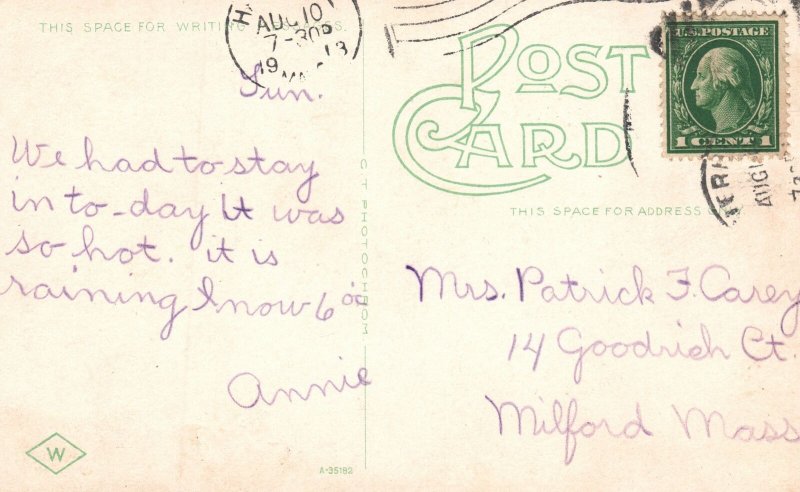 THIS SPACE FOR WRITING
AUG 10
7-30P
19 13
Sun.
We had to stay
in to-day It was
so hot. it is
raining now 6 00
Annie
W
A-35182
C.T. PHOTOCHROM
POST
CARD
U.S. POSTAGE
1 CENT 1
AUG
THIS SPACE FOR ADDRESS
Mrs. Patrick F. Carey
14 Goodrich Ct.
Milford Mass